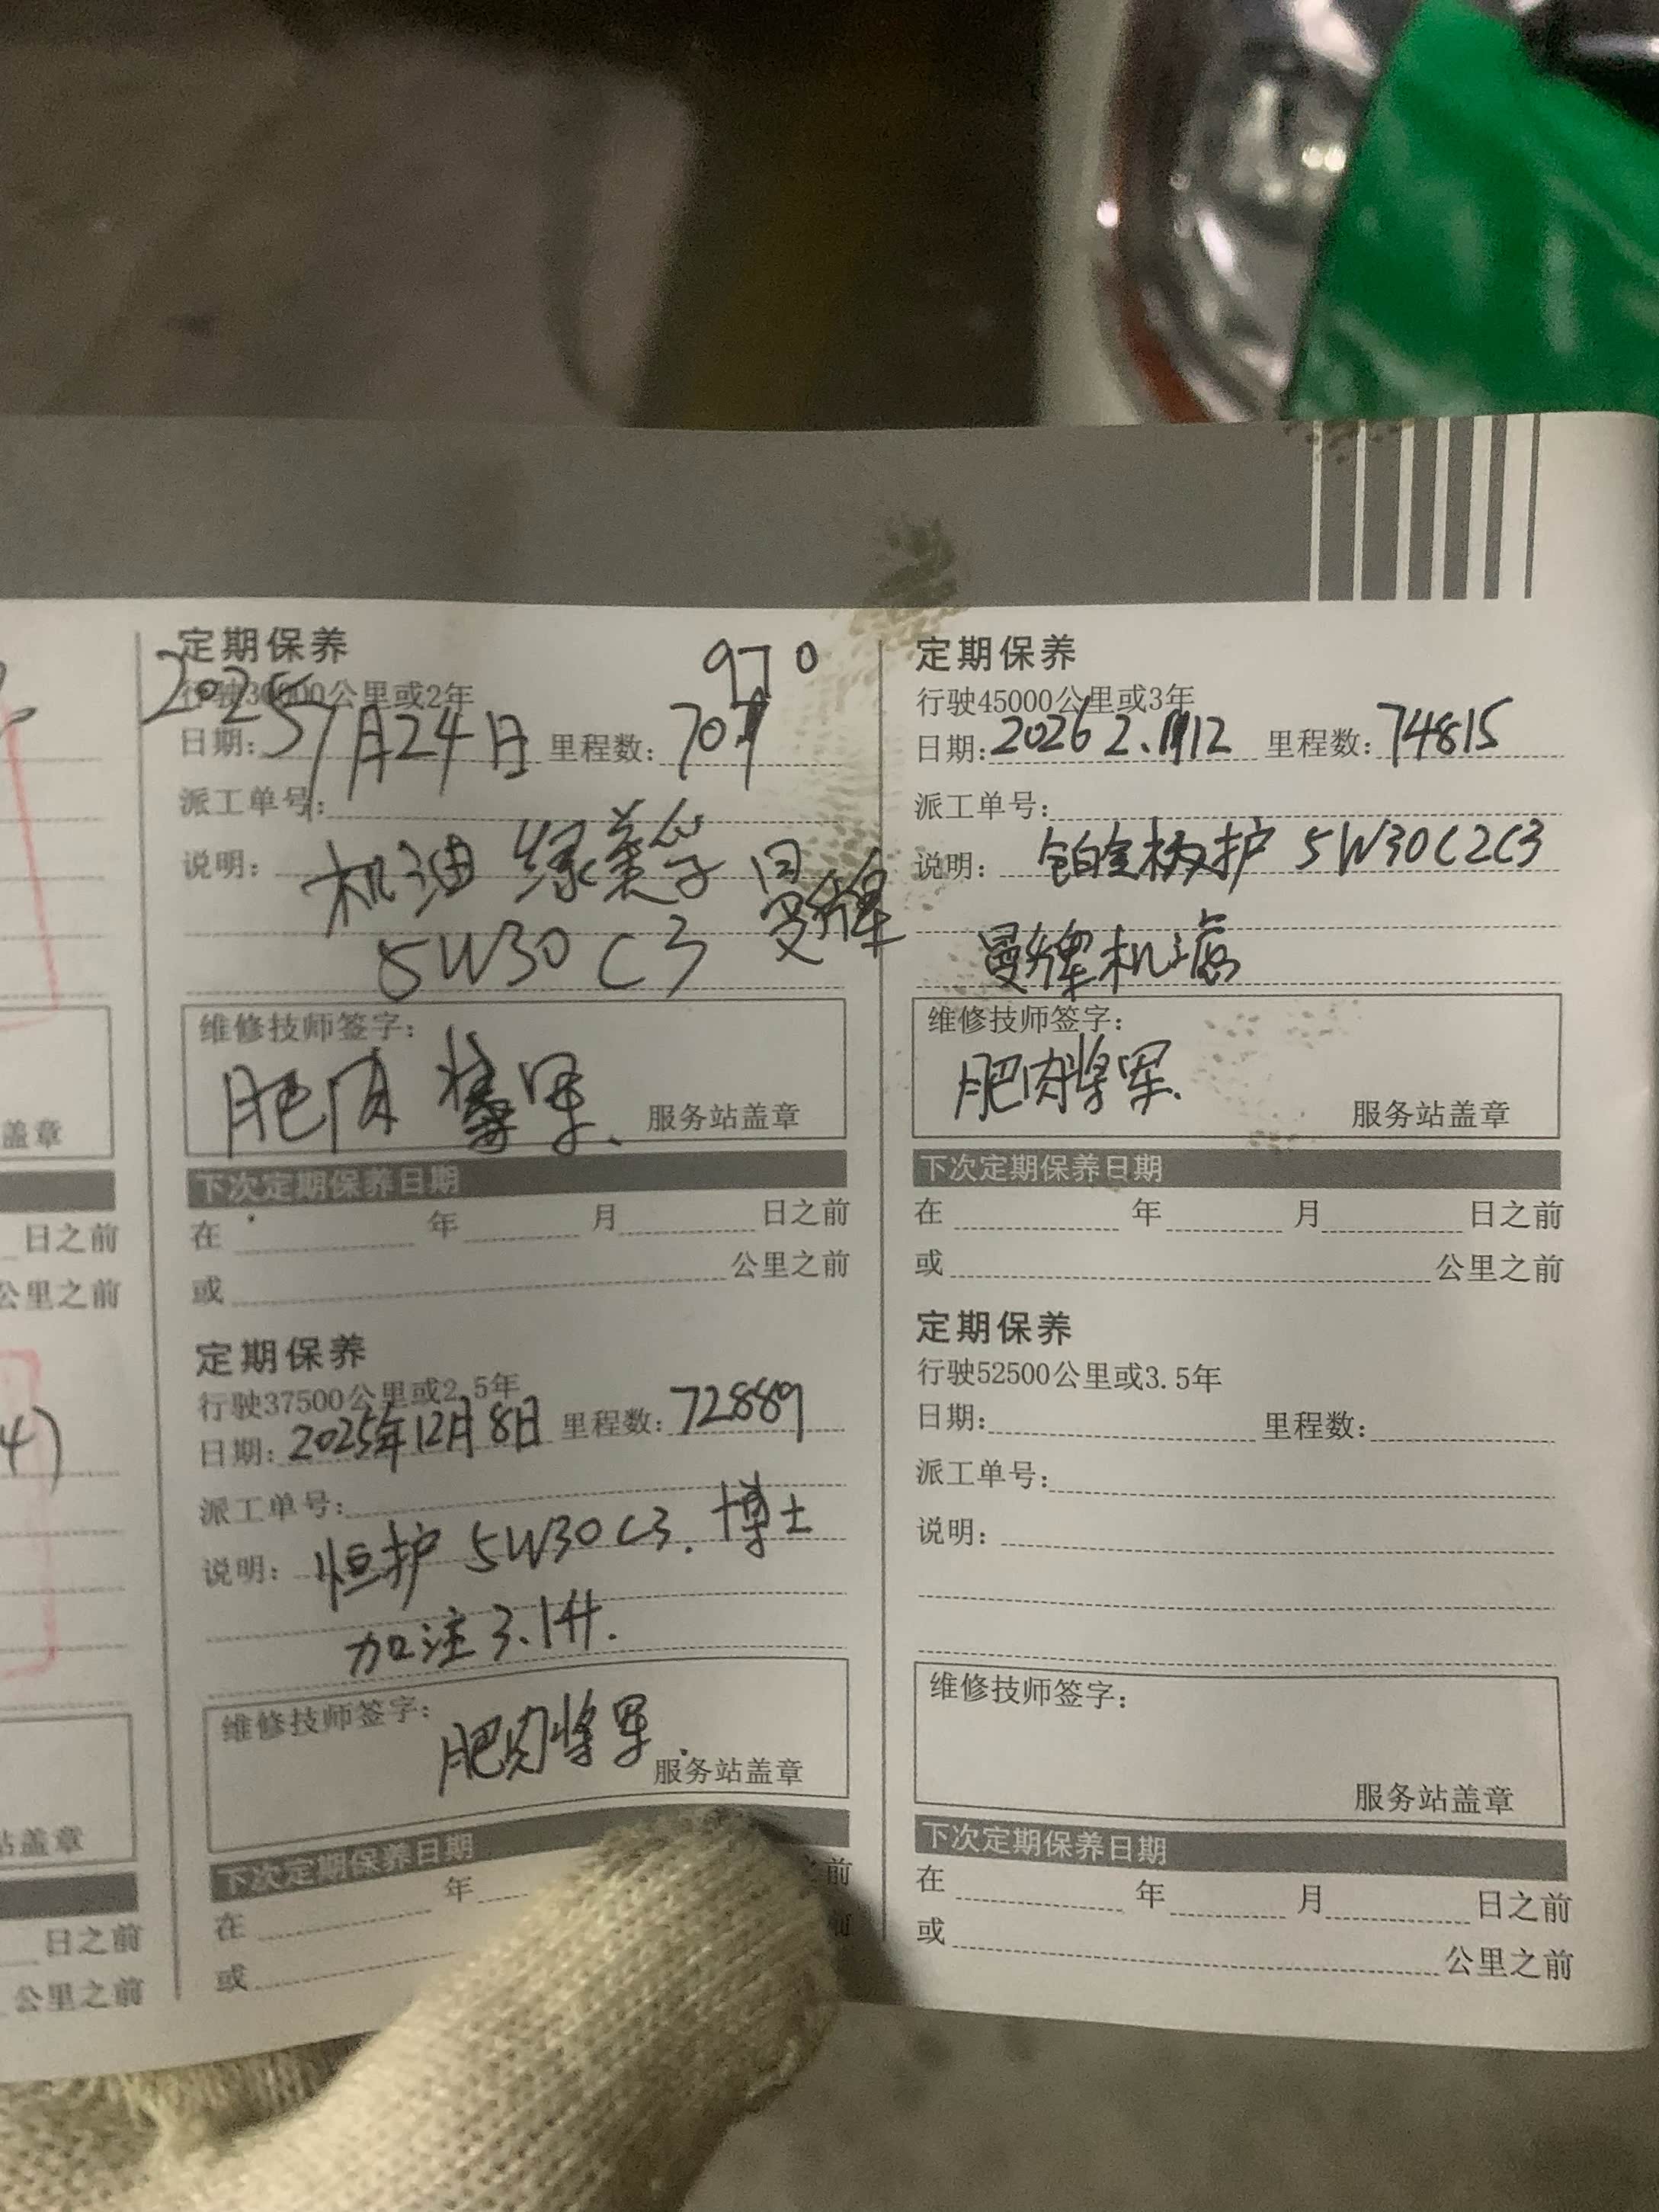 盖章
日之前
公里之前
4)
站盖章
日之前
公里之前
定期保养
行驶30000公里或2年
2025
日期: 7月24日 里程数: 70
970
派工单号:
说明: 机油 绿美孚 曼牌
5W30 C3
维修技师签字:
肥肉将军.
服务站盖章
下次定期保养日期
在 年 月 日之前
或 公里之前
定期保养
行驶37500公里或2.5年
日期: 2025年12月8日 里程数: 72889
派工单号:
说明: 恒护 5W30 C3. 博士
加注3.1升.
维修技师签字:
肥肉将军.
服务站盖章
下次定期保养日期
在 年 之前
或 前
定期保养
行驶45000公里或3年
日期: 2026 2. 12 里程数: 74815
派工单号:
说明: 铂金极护 5W30C2C3
曼牌机滤
维修技师签字:
肥肉将军.
服务站盖章
下次定期保养日期
在 年 月 日之前
或 公里之前
定期保养
行驶52500公里或3.5年
日期: 里程数:
派工单号:
说明:
维修技师签字:
服务站盖章
下次定期保养日期
在 年 月 日之前
或 公里之前